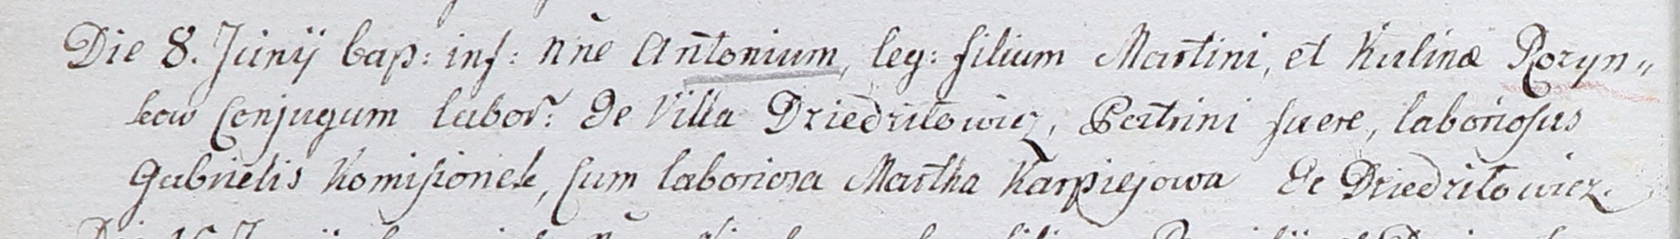 Die 8. Junij bap: inf: nñe Antonium, leg: filium Martini, et Kulinæ Rozyn„
kow Conjugum labor: De Villa Dziedziłowicz, Patrini fuere, laboriosus
Gabrielis Komisionek, cum laboriosa Martha Karpiejowa De Dziedziłowicz.